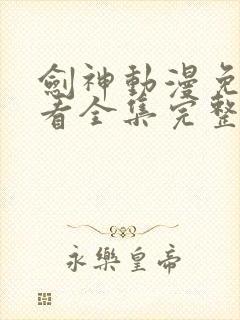 劍神動漫免
看全集完整
永樂皇帝